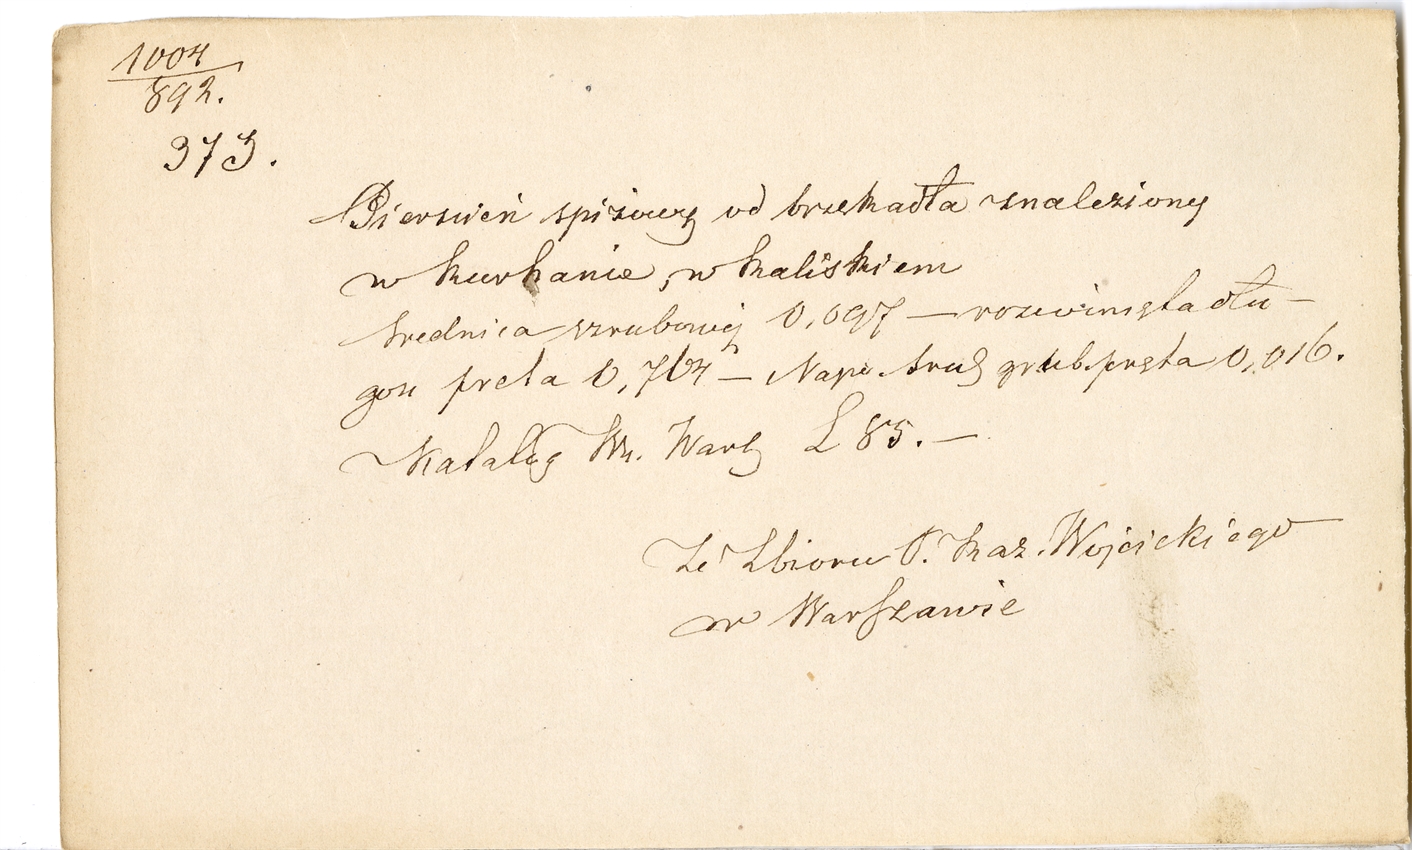 1004
892.
373.
Pierscień spiżowy od brzękadła znaleziony
w kurhanie, w kaliskiem
średnica szrubowej 0,097 — rozwinięta dłu-
goś pręta 0,764 — Najw. śred. grub. pręta 0,016.
Katalog Wys. Warsz. L 85. —
Ze Zbioru P. Kaz. Wojcickiego
w Warszawie